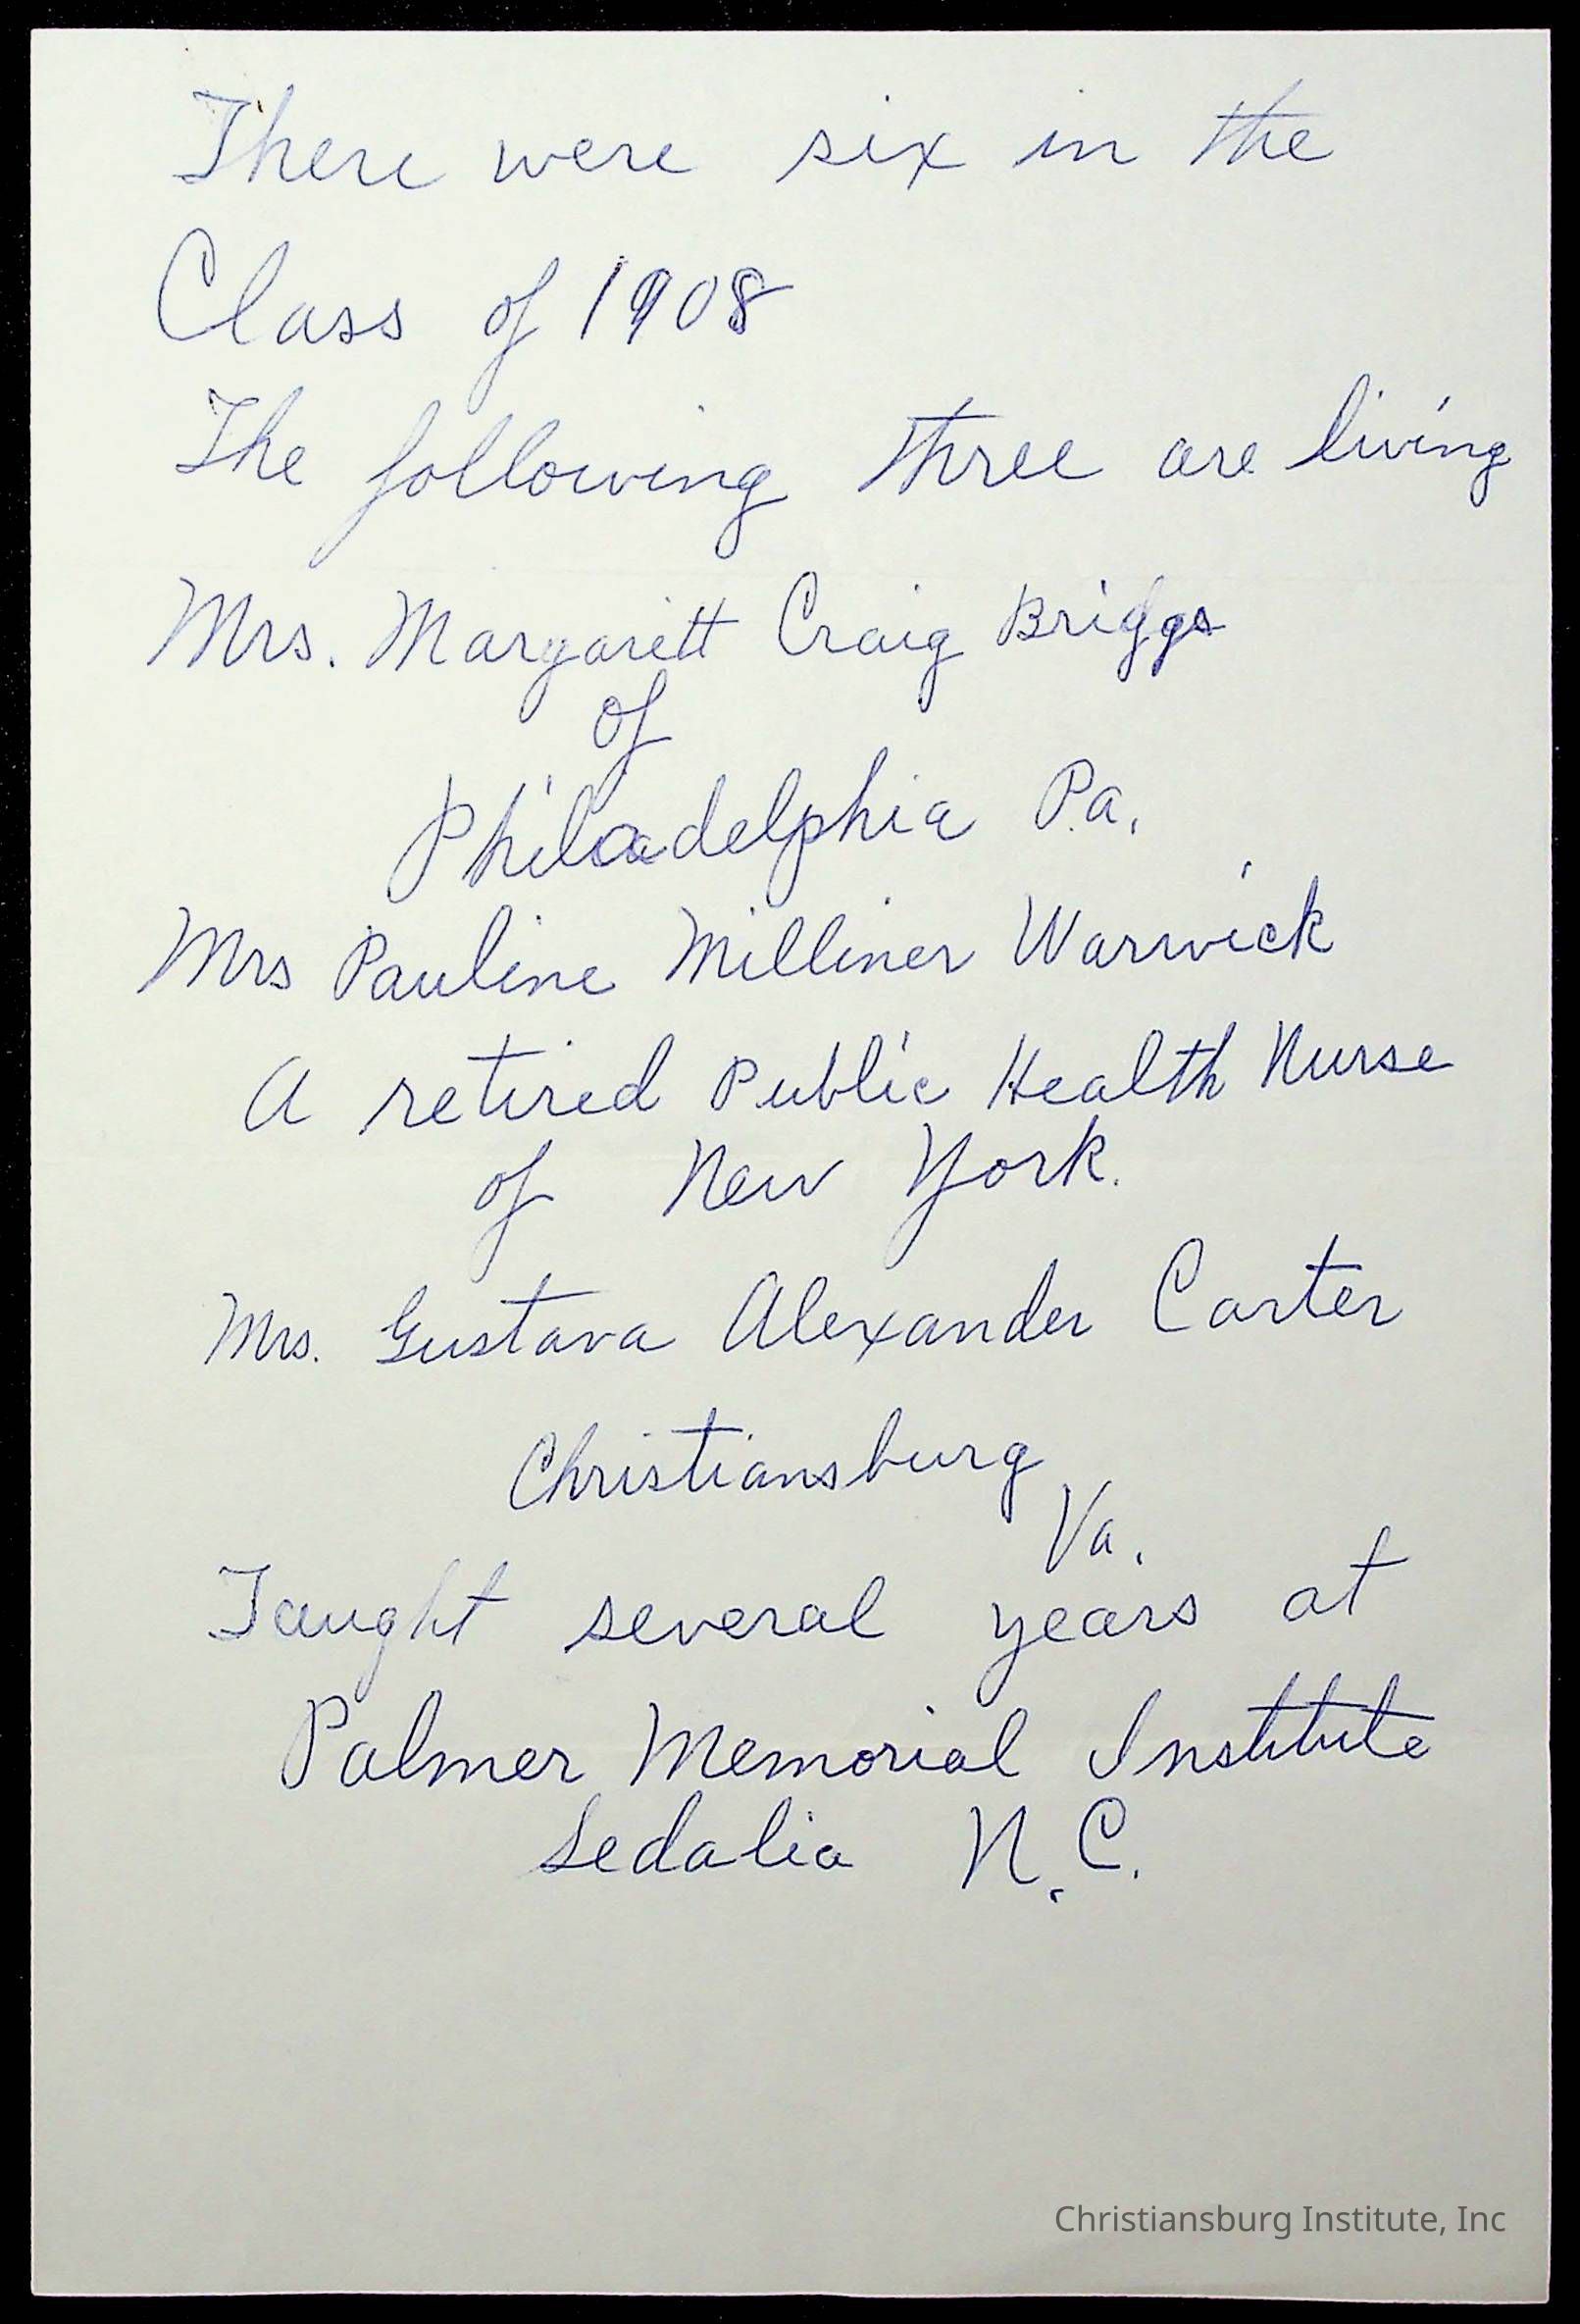 There were six in the
Class of 1908
The following three are living
Mrs. Margarett Craig Briggs
of
Philadelphia Pa.
Mrs Pauline Milliner Warwick
A retired Public Health Nurse
of New York.
Mrs. Gustava Alexander Carter
Christiansburg
Va.
Taught several years at
Palmer Memorial Institute
Sedalia N.C.
Christiansburg Institute, Inc